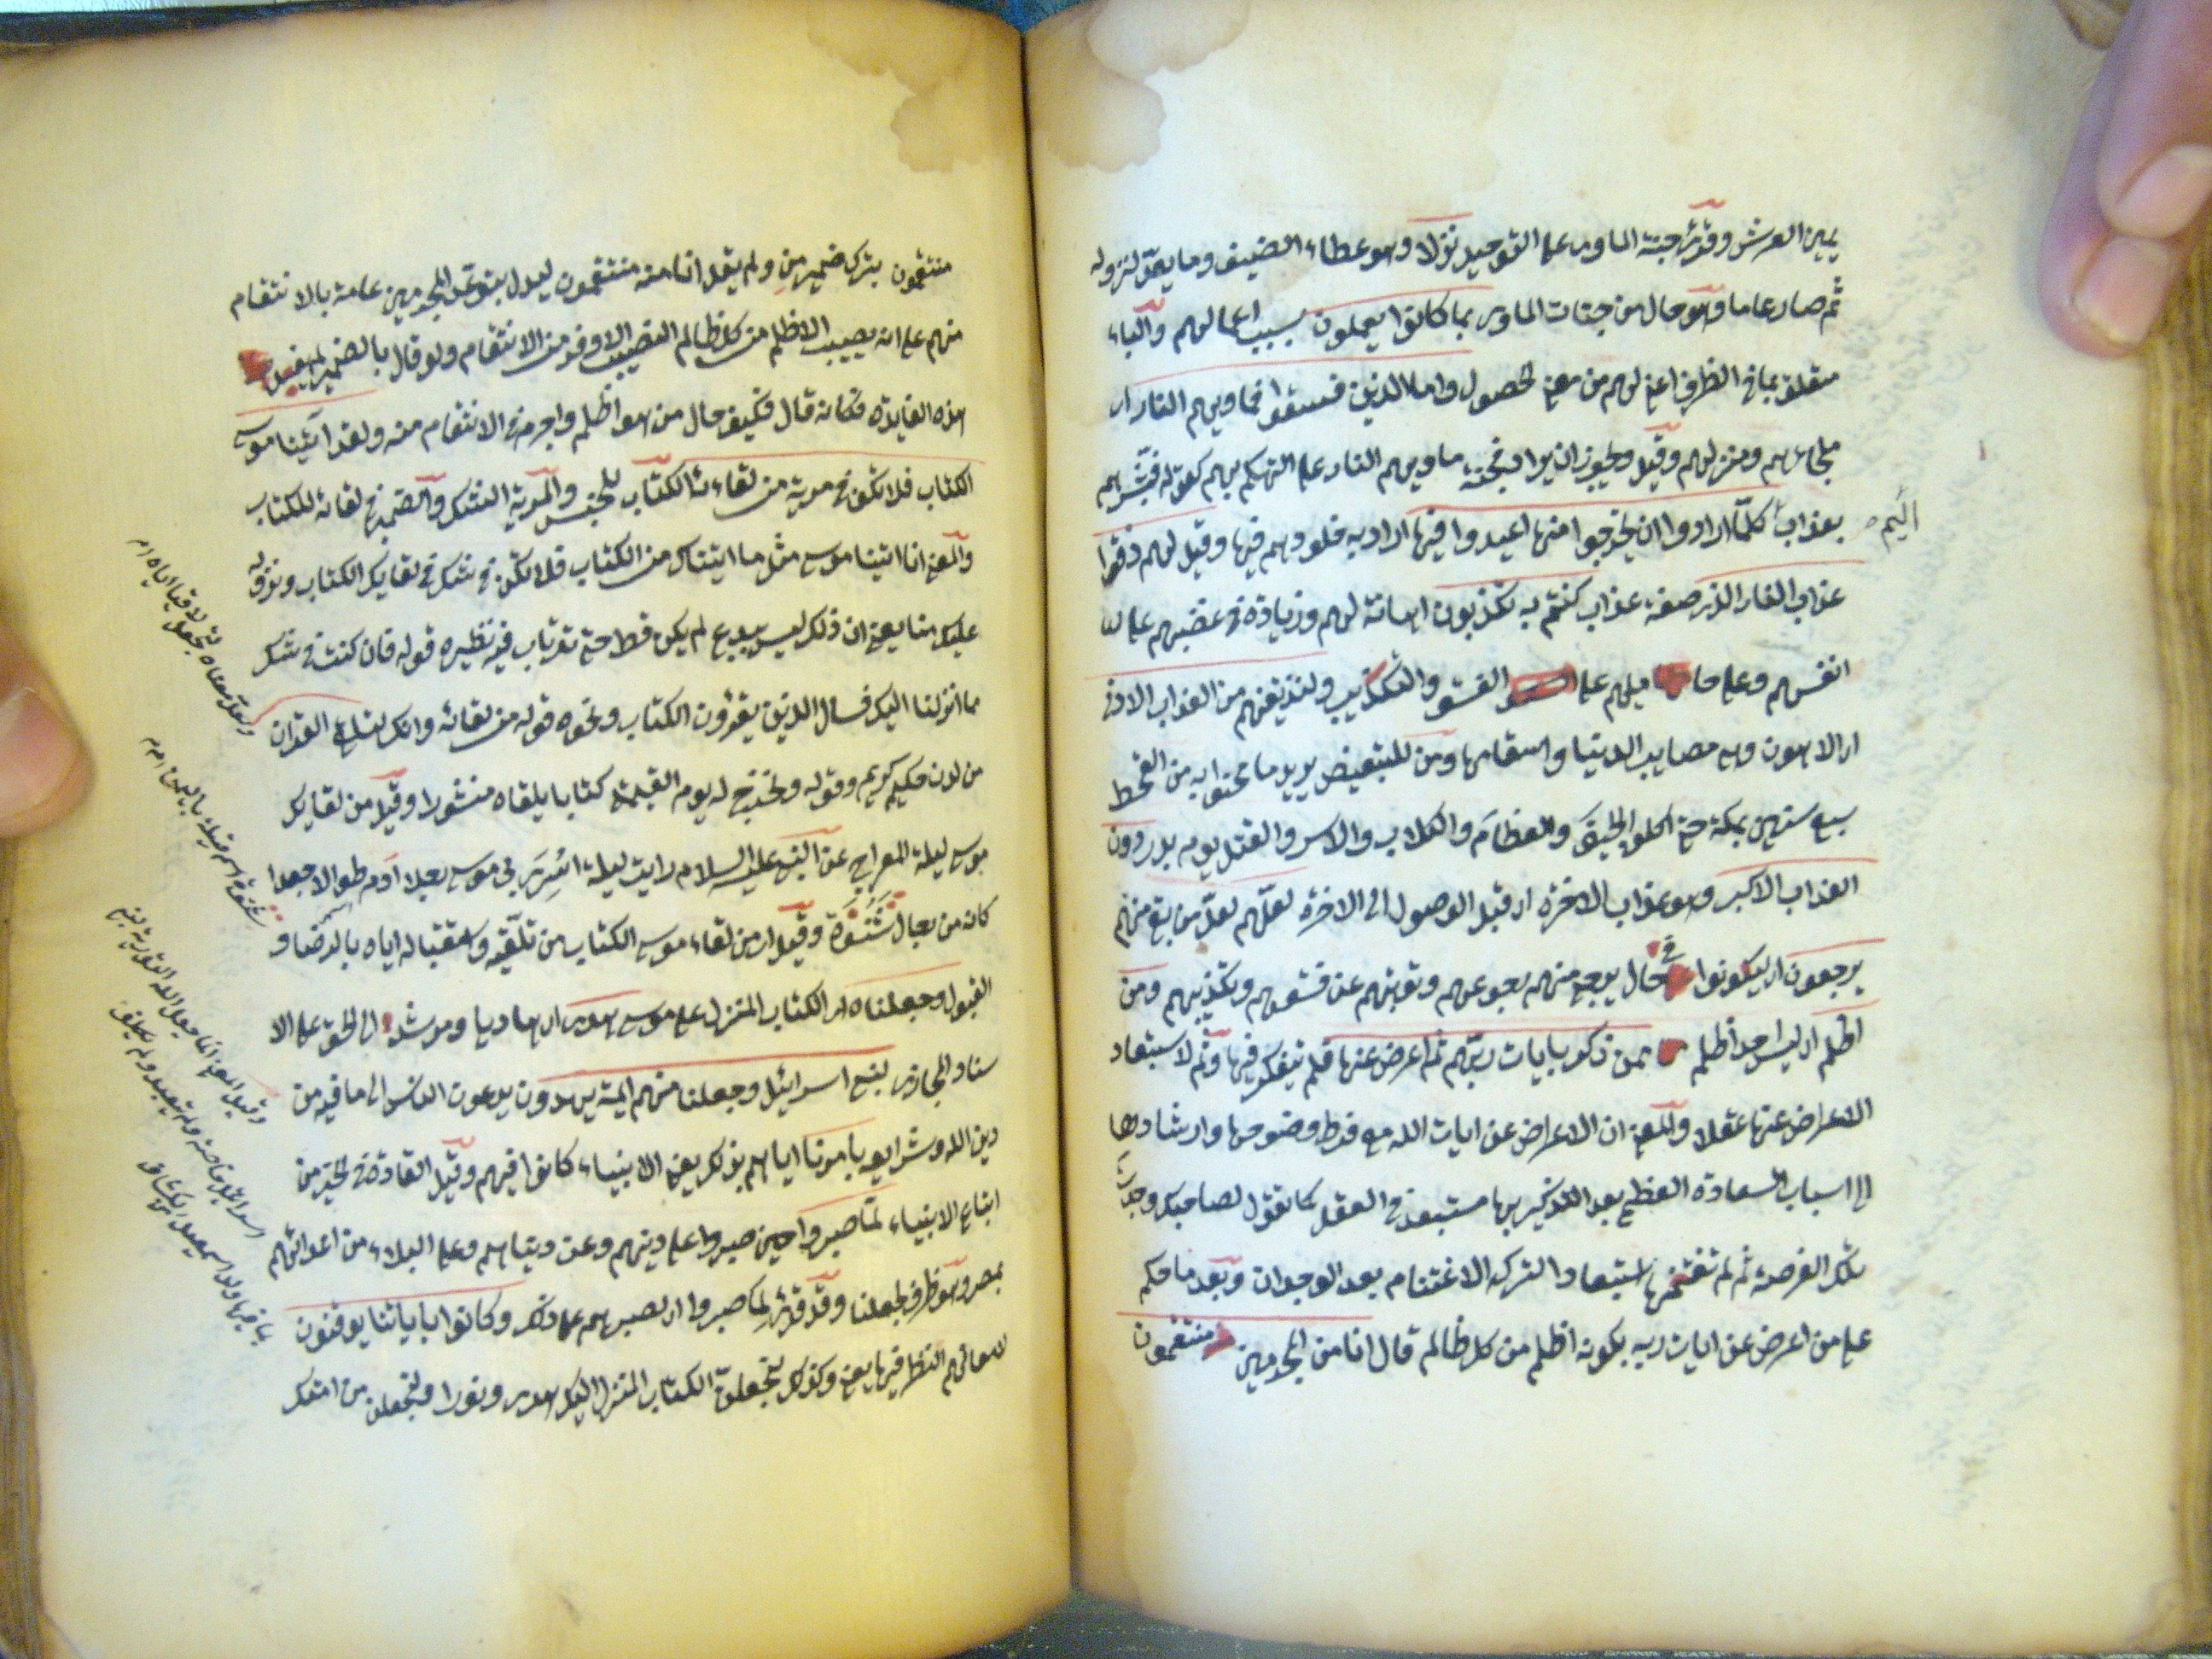 يمين العرش وقرئ جنة الماوى على التوحيد نزلا وهو عطاء الضيف وما يعد لنزوله
ثم صار عاما وهو حال من جنات الماوى بما كانوا يعملون بسبب اعمالهم والباء
متعلق بما في الظرف اعني لهم من معنى الحصول واما الذين فسقوا فماويهم النار اى
ملجاهم ومنزلهم وقيل ويجوز ان يراد فجنة ماويهم النار على التهكم بهم كقوله فبشرهم
بعذاب كلما ارادوا ان يخرجوا منها اعيدوا فيها اراد به خلودهم فيها وقيل لهم ذوقوا
اليم
عذاب النار الذى صفة عذاب كنتم به تكذبون اهانة لهم وزيادة في غضبهم على
انفسهم وعلى ما ميلهم على الفسق والتكذيب ولنذيقنهم من العذاب الادنى
اى الاهون وهى مصايب الدنيا واسقامها ومن للتبعيض يريد ما محنوا به من القحط
سبع سنين بمكة حتى اكلوا الجيف والعظام والكلاب والاسر والقتل يوم بدر دون
العذاب الاكبر وهو عذاب الاخرة اى قبل الوصول الى الاخرة لعلهم لعل من بقي منهم
يرجعون اى ليكونوا في حال يرجى منهم رجوعهم وتوبتهم عن فسقهم وتكذيبهم ومن
اظلم اى ليس احد اظلم ممن ذكر بايات ربه ثم اعرض عنها فلم يتفكر فيها وثم لاستبعاد
الاعراض عنها عقلا والمعنى ان الاعراض عن ايات الله مع فرط وضوحها وارشادها
الى اسباب السعادة العظمى بعد التذكير بها مستبعد في العقل كما تقول لصاحبك وجدت
تلك الفرصة ثم لم تغتنمها استبعادا لتركه الاغتنام بعد الوجدان وبعد ما حكم
على من اعرض عن ايات ربه بكونه اظلم من كل ظالم قال انا من المجرمين منتقمون
منتقمون بترك ضمير من ولم يقل انا منه منتقمون ليدل بتوعد المجرمين عامة بالانتقام
منهم على انه يصيب الاظلم من كل ظالم النصيب الاوفر من الانتقام ولو قال بالضمير لم يفد
هذه الفايدة فكانه قال فكيف حال من هو اظلم واجرم في الانتقام منه ولقد اتينا موسى
الكتاب فلا تكن في مرية من لقائه الكتاب للجنس والمرية الشك والضمير في لقائه للكتاب
والمعنى انا اتينا موسى مثل ما اتيتاك من الكتاب فلا تكن في شك في لقايك الكتاب ونزوله
عليك منا يعني ان ذلك ليس ببدع لم يكن قط حتى ترتاب فيه نظيره قوله فان كنت في شك
مما انزلنا اليك فسال الذين يقرؤن الكتاب ونحوه قوله من لقائه وانك لتلقى القران
من لدن حكيم كريم وقوله ونخرج له يوم القيمة كتابا يلقاه منشورا وقيل من لقايك
موسى ليلة المعراج عن النبي عليه السلام رايت ليلة اسرى بي موسى رجلا ادم طوالا جعدا
كانه من رجال شنوة وقيل اى من لقاء موسى الكتاب من تلقيه واستقباله اياه بالرضا و
القبول وجعلناه اى الكتاب المنزل على موسى هدى اى هاديا ومرشدا الى الحق على الا
سناد المجازى لبني اسرائيل وجعلنا منهم ائمة يهدون يدعون الناس الى ما فيه من
دين الله وشرايعه بامرنا اياهم بذلك يعني الانبياء كانوا فيهم وقيل القادة في الخير من
اتباع الانبياء لما صبروا حين صبروا على دينهم وعن دنياهم وعلى البلاء من اعدائهم
بمصر وهو ظرف لجعلنا وقد قرئ لما صبروا اى لصبرهم على ذلك وكانوا باياتنا يوقنون
لامعانهم النظر فيها يعني وكذلك لنجعلن الكتاب المنزل اليك هدى ونورا ولنجعلن من امتك
شنوة اسم قبيلة باليمن
وقيل المعنى انما جعل الله التورية لبني
اسرائيل خاصة ولم يتعبد
بما فيها ولد اسمعيل كشاف